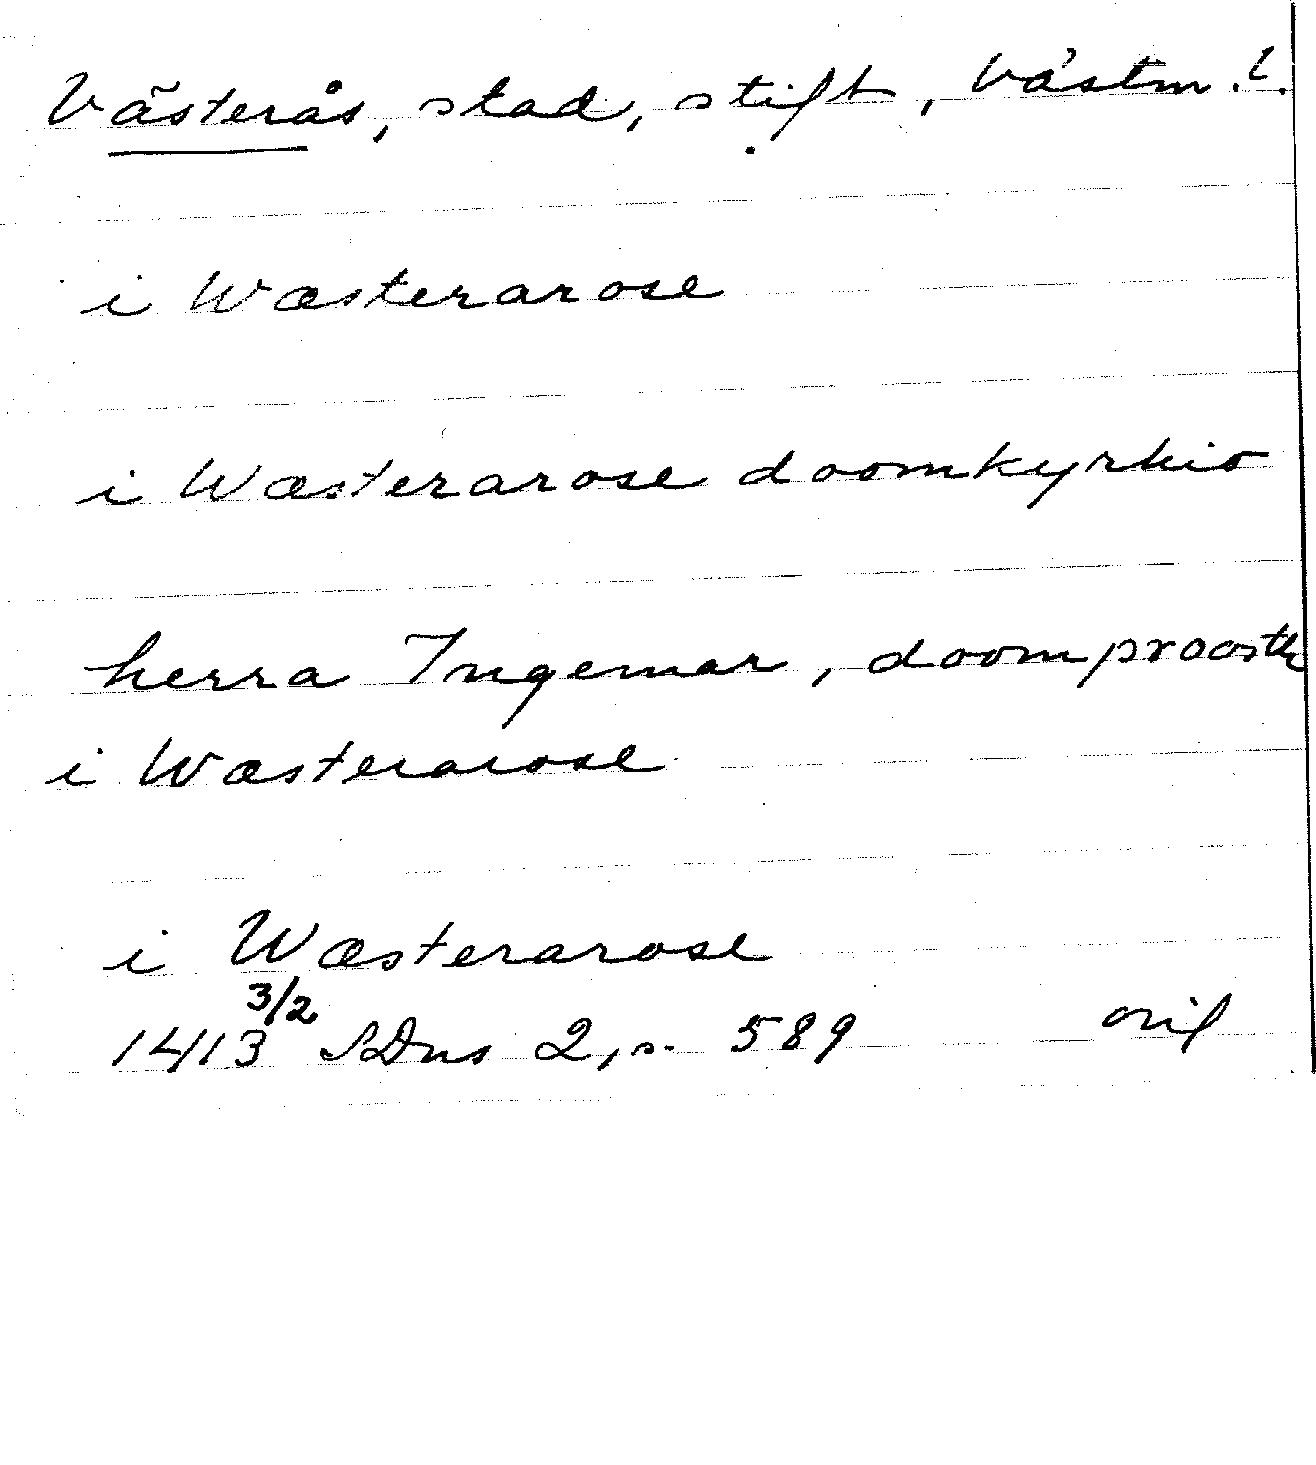 Västerås, stad, stift, Västm. l.
i Wæsterarose
i Wæsterarose doomkyrkio
herra Ingemar, doomprooste
i Wæsterarose
i Wæsterarose
3/2
1413 SDns 2, s. 589 orig